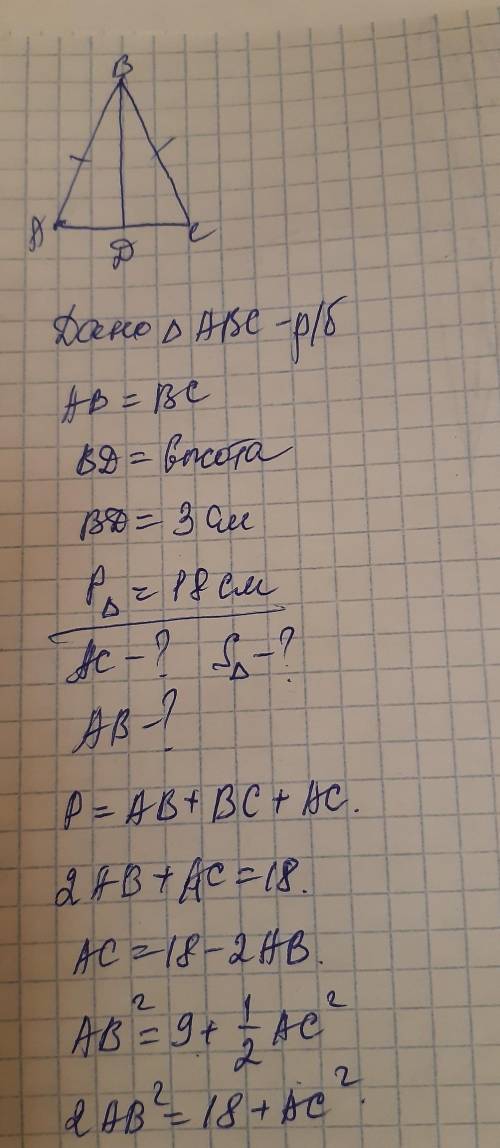 B
A D C
Дано △ ABC - р/б
AB = BC
BD = высота
BD = 3 см
P△ = 18 см
AC - ? S△ - ?
AB - ?
P = AB + BC + AC.
2AB + AC = 18.
AC = 18 - 2AB.
AB² = 9 + 1/2 AC²
2AB² = 18 + AC².